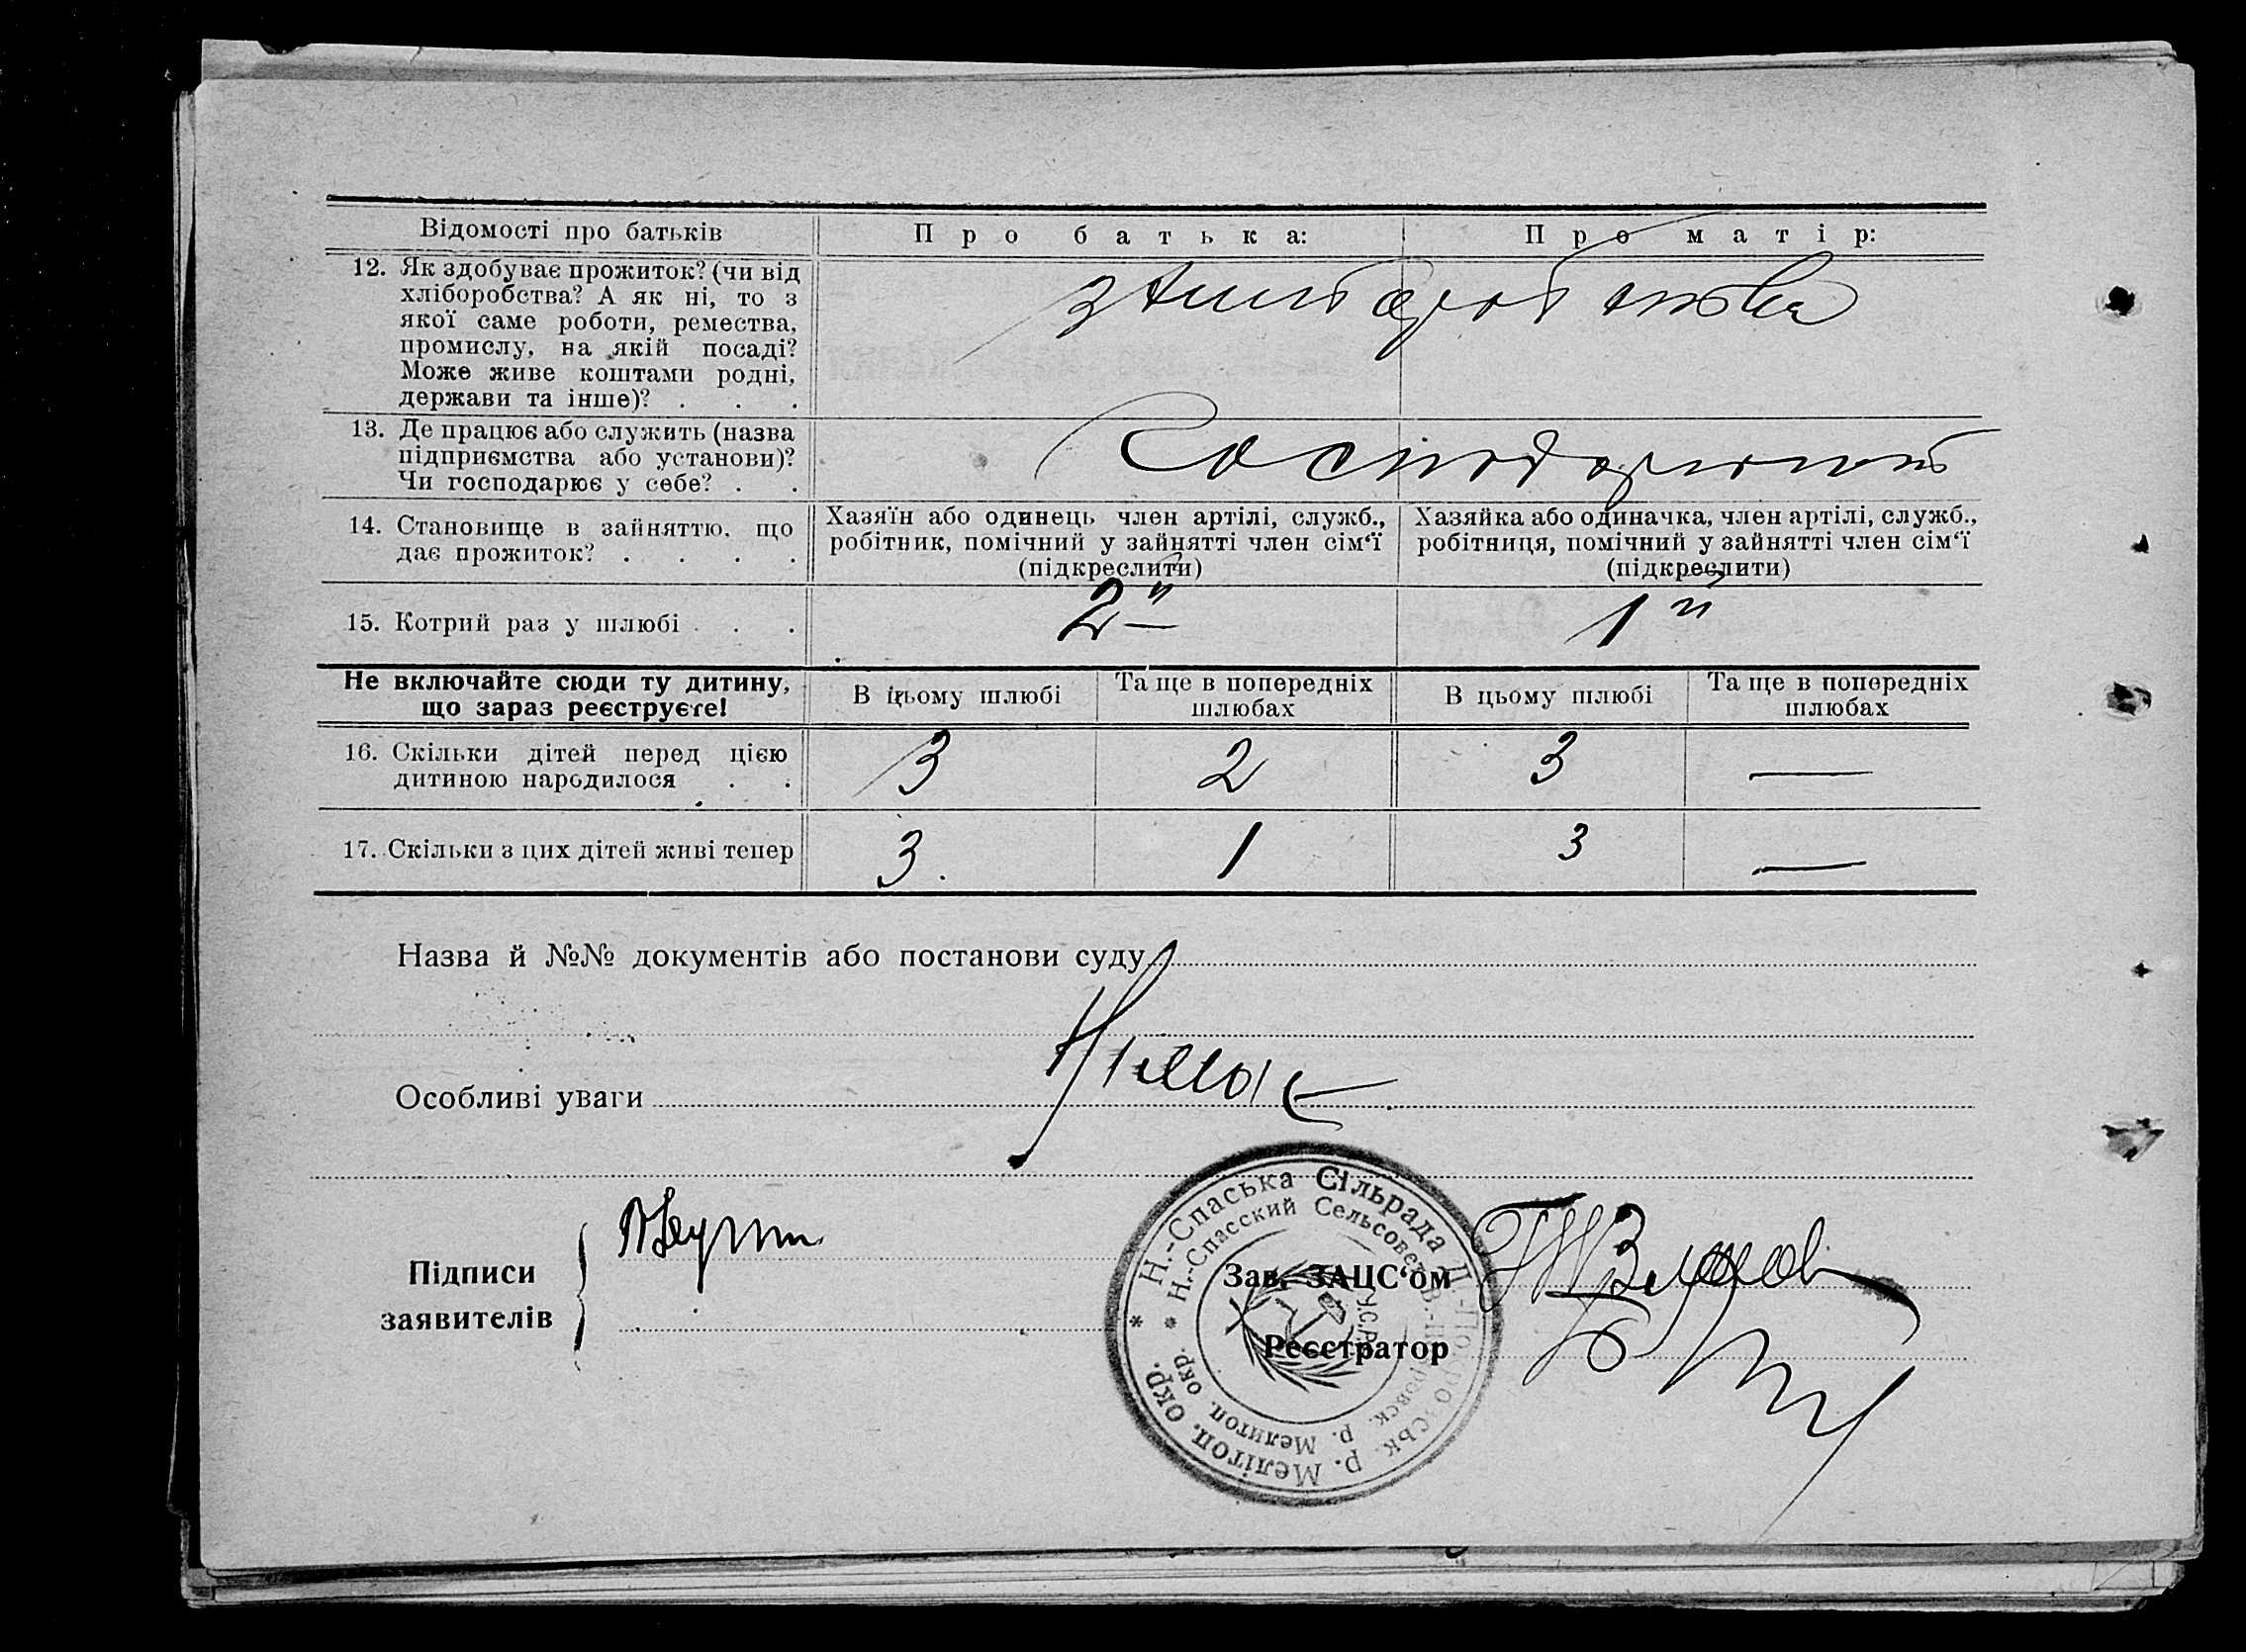 Відомості про батьків
Про батька:
Про матір:
12. Як здобуває прожиток? (чи від
хліборобства? А як ні, то з
якої саме роботи, ремества,
промислу, на якій посаді?
Може живе коштами родні,
держави та інше)? . . .
13. Де працює або служить (назва
підприємства або установи)?
Чи господарює у себе? . .
14. Становище в зайняттю, що
дає прожиток? . . . .
Хазяїн або одинець член артілі, служб.,
робітник, помічний у зайнятті член сім‘ї
(підкреслити)
Хазяйка або одиначка, член артілі, служб.,
робітниця, помічний у зайнятті член сім‘ї
(підкреслити)
15. Котрий раз у шлюбі . . .
2й
1й
Не включайте сюди ту дитину,
що зараз реєструєте!
В цьому шлюбі
Та ще в попередніх
шлюбах
В цьому шлюбі
Та ще в попередніх
шлюбах
16. Скільки дітей перед цією
дитиною народилося . .
3 2 3 —
17. Скільки з цих дітей живі тепер
3. 1 3 —
Назва й №№ документів або постанови суду
Немає
Особливі уваги
Підписи
заявителів
Зав. ЗАЦС‘ом
Реєстратор
* Н.-Спаська Сільрада ськ. р. Мелітоп. окр.
* Н.-Спасский Сельсовет р. Мелитоп. окр.
У.С.Р.Р.